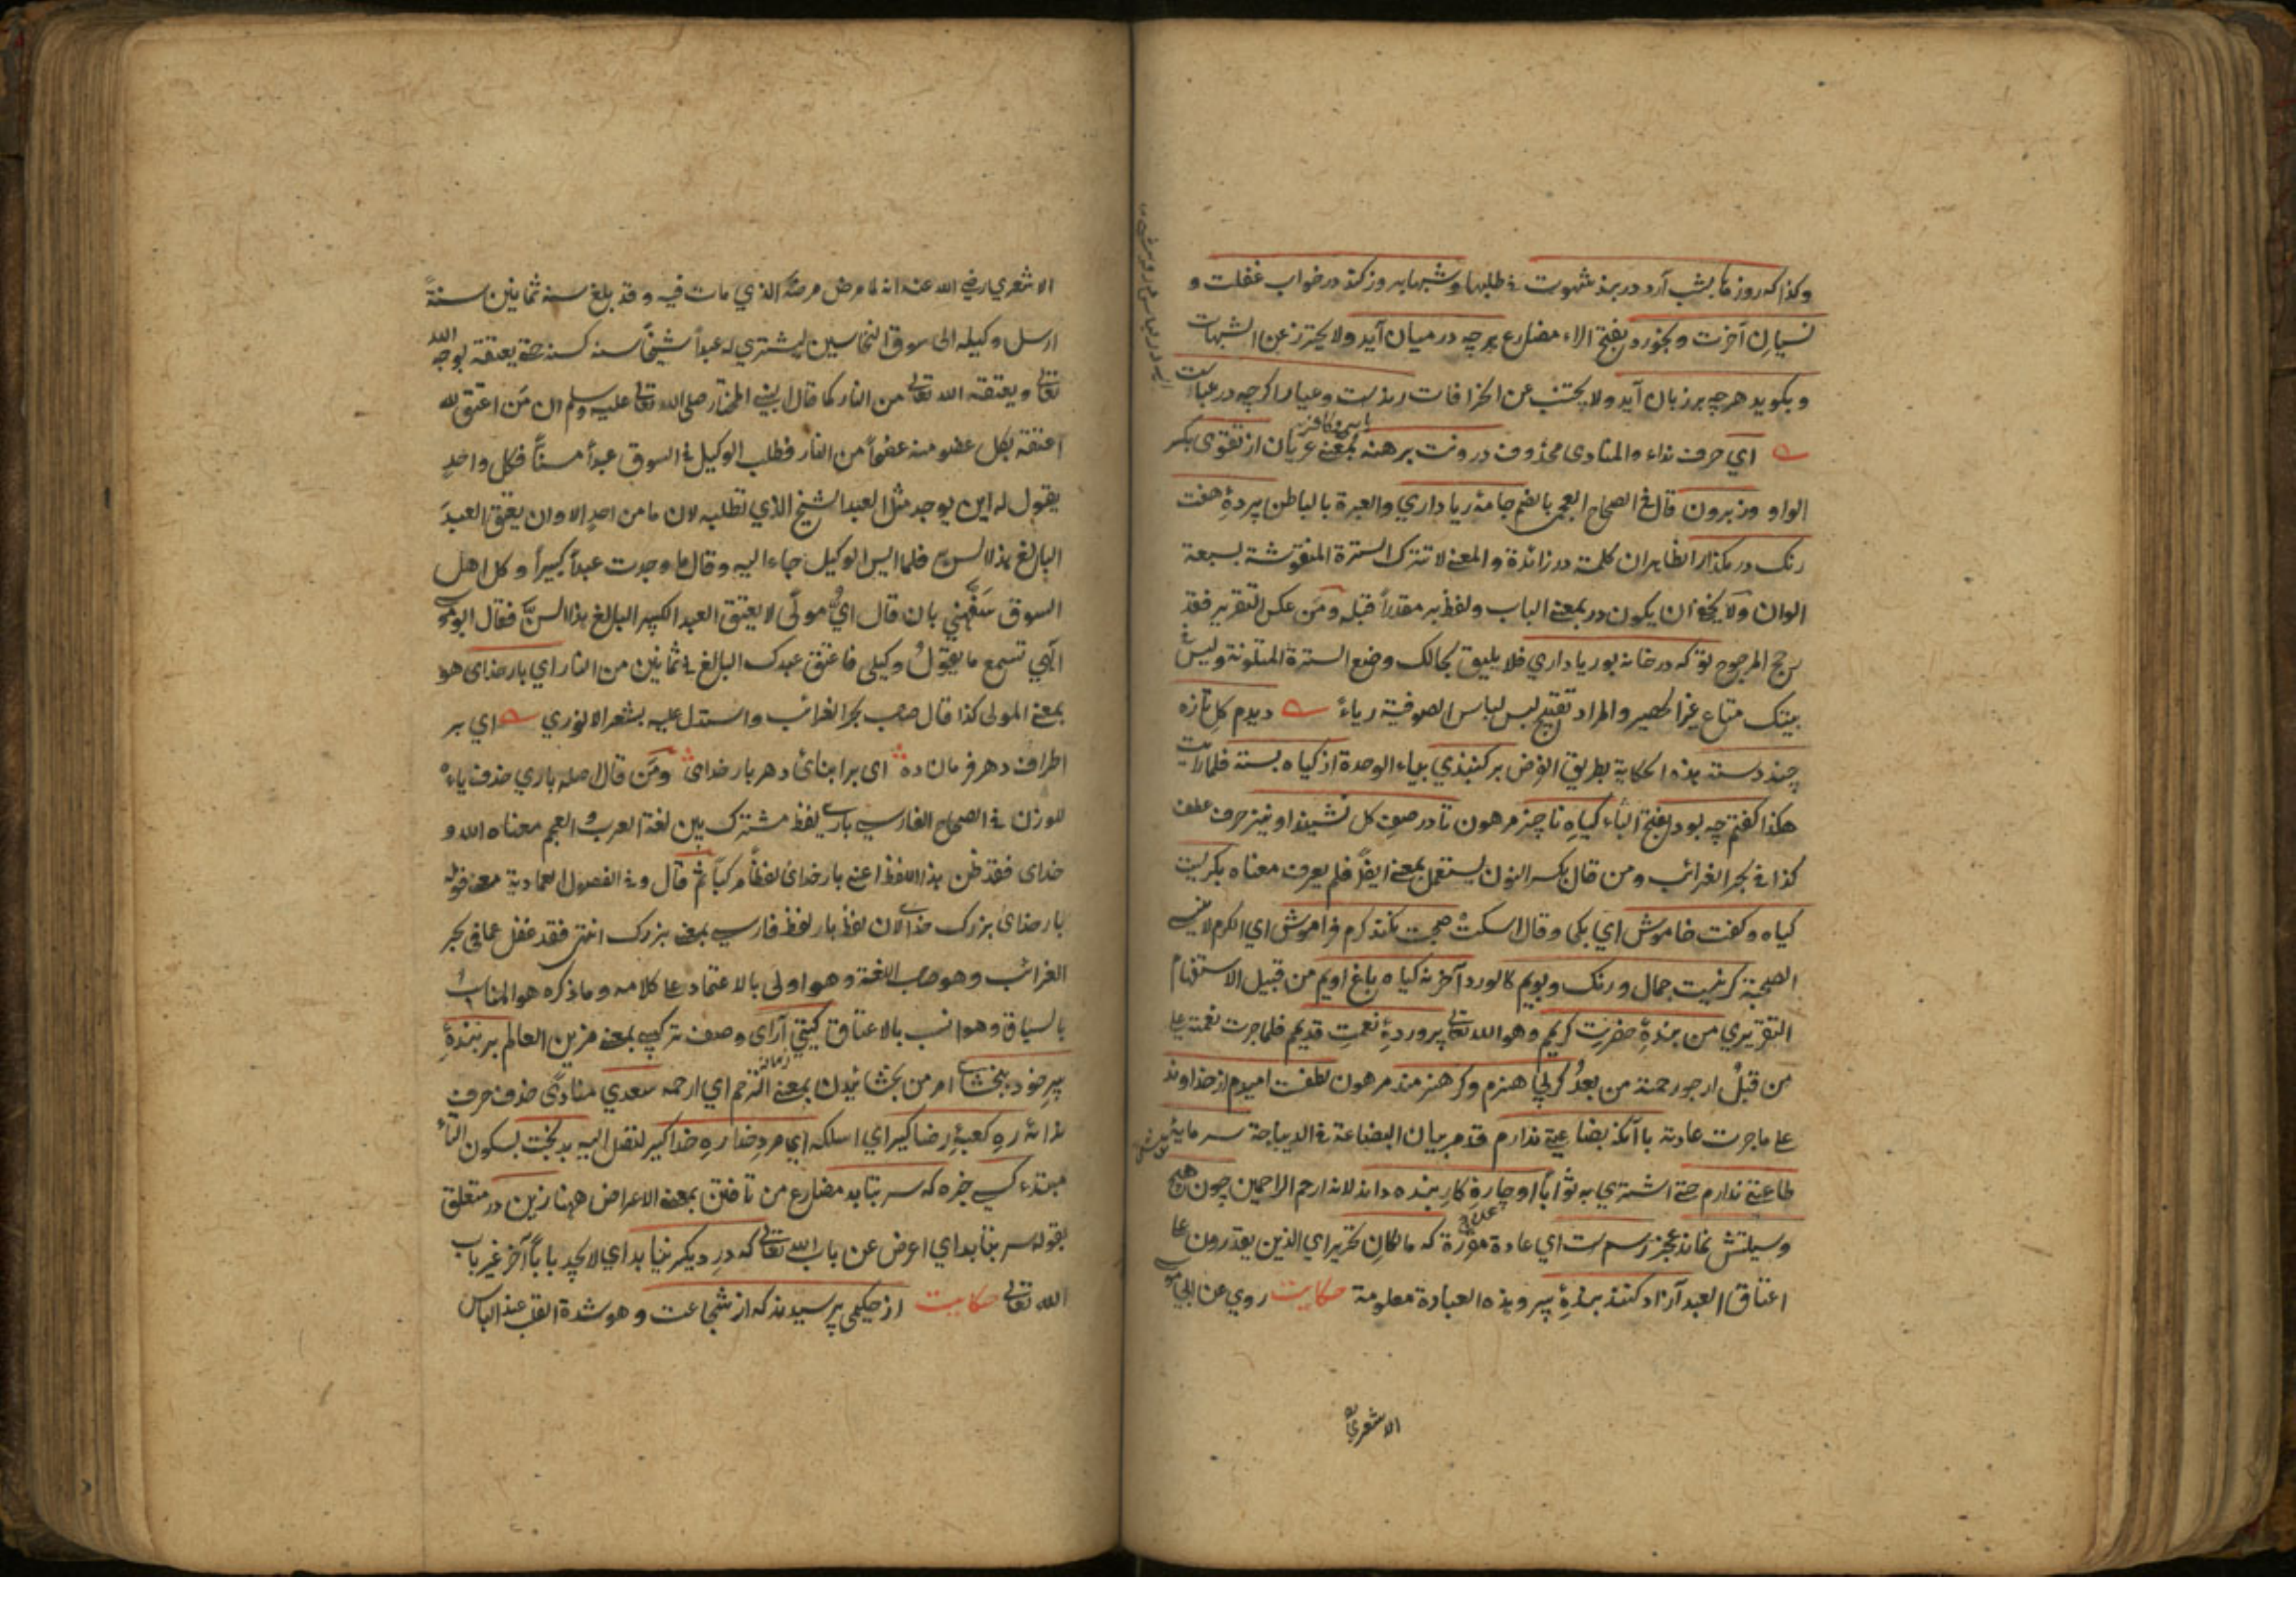 وكذا كه روزها بشب آرد در بند شهوت في طلبها وشبها بروز كند در خواب غفلت و
نسيان آخرت وبخورد بفتح الراء مضارع هرچه در ميان آيد ولا يحترز عن الشبهات
وبگويد هرچه بر زبان آيد ولا يجتنب عن الخزافات رندست وعيار اگرچه در عباست
اي حرف نداء والمنادى محذوف درونت برهنه بمعنى عريان از تقوى بكسر
الواو وز برون قال في الصحاح العجمي بالضم جامهٔ ريا داري والعبرة بالباطن پردهٔ هفت
رنگ در مگذار الظاهر ان كلمة در زائدة والمعنى لا تترك السترة المنقوشة بسبعة
الوان ولا يخفى ان يكون در بمعنى الباب ولفظ بر مقدراً قبله ومن عكس التقرير فقد
رجح المرجوح تو كه در خانه بوريا داري فلا يليق بحالك وضع السترة المتلونة وليس في
بيتك متاع غير الحصير والمراد تقبيح لبس لباس الصوفية رياءً ديدم گل تازه
چند دسته هذه الحكاية بطريق الفرض بر گنبذي بياء الوحدة از گياه بسته فلما رايت
هكذا گفتم چه بود بفتح الباء گياه ناچيز مرهون تا در صف گل نشيند او نيز حرف عطف
كذا في بحر الغرائب ومن قال بكسر النون يستعمل بمعنى ايضاً فلم يعرف معناه بگريست
گياه وگفت خاموش اي بكى وقال اسكت صحبت نكند كرم فراموش اي الكرم لا ينسى
الصحبة گر نيست جمال ورنگ وبويم كالورد آخر نه گياه باغ اويم من قبيل الاستفهام
التقريري من بندهٔ حضرت كريم وهو الله تعالى پروردهٔ نعمت قديم فلما جرت نعمته على
من قبل ارجو رحمته من بعد گر بي هنرم وگر هنرمند مرهون لطفست اميدم از خداوند
على ما جرت عادته با آنكه بضاعتي ندارم قد مر بيان البضاعة في الديباجة سرمايهٔ
طاعتي ندارم حتى اشتري به ثواباً او چارهٔ كار بنده داند لانه ارحم الراحمين چون هيچ
وسيلتش نماند بعجز رسم ست اي عادة مؤثرة كه مالكان تحرير اي الذين يقدرون على
اعتاق العبد آزاد كنند بندهٔ پير وهذه العبادة معلومة حكايت روي عن ابي موسى
الاشعري
الاشعري رضي الله عنه انه لما مرض مرضه الذي مات فيه وقد بلغ سنه ثمانين سنةً
ارسل وكيله الى سوق النخاسين ليشتري له عبداً شيخاً سنه كسنه حتى يعتقه لوجه الله
تعالى ويعتقه الله تعالى من النار كما قال النبي المختار صلى الله تعالى عليه وسلم ان من اعتق لله
اعتقه بكل عضو منه عضواً من النار فطلب الوكيل في السوق عبداً مسنّاً فكل واحد
يقول له اين يوجد مثل العبد الشيخ الذي تطلبه لان ما من احدٍ الا وان يعتق العبد
البالغ بهذا السن فلما ايس الوكيل جاء اليه وقال ما وجدت عبداً كبيراً وكل اهل
السوق سفهني بان قال اي مولى لا يعتق العبد الكبير البالغ بهذا السن فقال ابو موسى
الهي تسمع ما يقول وكيلي فاعتق عبدك البالغ في ثمانين من النار اي بار خداى هو
بمعنى المولى كذا قال صاحب بحر الغرائب واستدل عليه بشعر الانوري اي بر
اطراف دهر فرمان ده اى بر ابناى دهر بار خداى ومن قال اصله باري حذف ياءه
للوزن في الصحاح الفارسي باري لفظ مشترك بين لغة العرب والعجم معناه الله و
خداى فقد ظن هذا اللفظ اعني بار خداى لفظاً مركباً ثم قال وفي الفصول العمادية معنى قوله
بار خداى بزرگ خداى لان لفظ بار لفظ فارسي بمعنى بزرگ انتهى فقد غفل عما في بحر
الغرائب وهو صاحب اللغة وهو اولى بالاعتماد على كلامه وما ذكره هو المناسب
بالسياق وهو انسب بالاعتاق گيتي آراى وصف تركيبي بمعنى مزين العالم بر بندهٔ
پير خود ببخشاى امر من بخشائيدن بمعنى الترحم اي ارحمه سعدي منادى حذف حرف
ندائه ره كعبهٔ رضا گير اي اسلكه اي مرد خدا ره خدا گير لتصل اليه بدبخت بسكون التاء
مبتدء كسى خبره كه سر بتابد مضارع من تافتن بمعنى الاعراض ههنا زين در متعلق
بقوله سر بتابد اي اعرض عن باب الله تعالى كه در ديگر نيابد اي لا يجد باباً آخر غير باب
الله تعالى حكايت از حكيمى پرسيدند كه از شجاعت وهو شدة القلب عند الباس